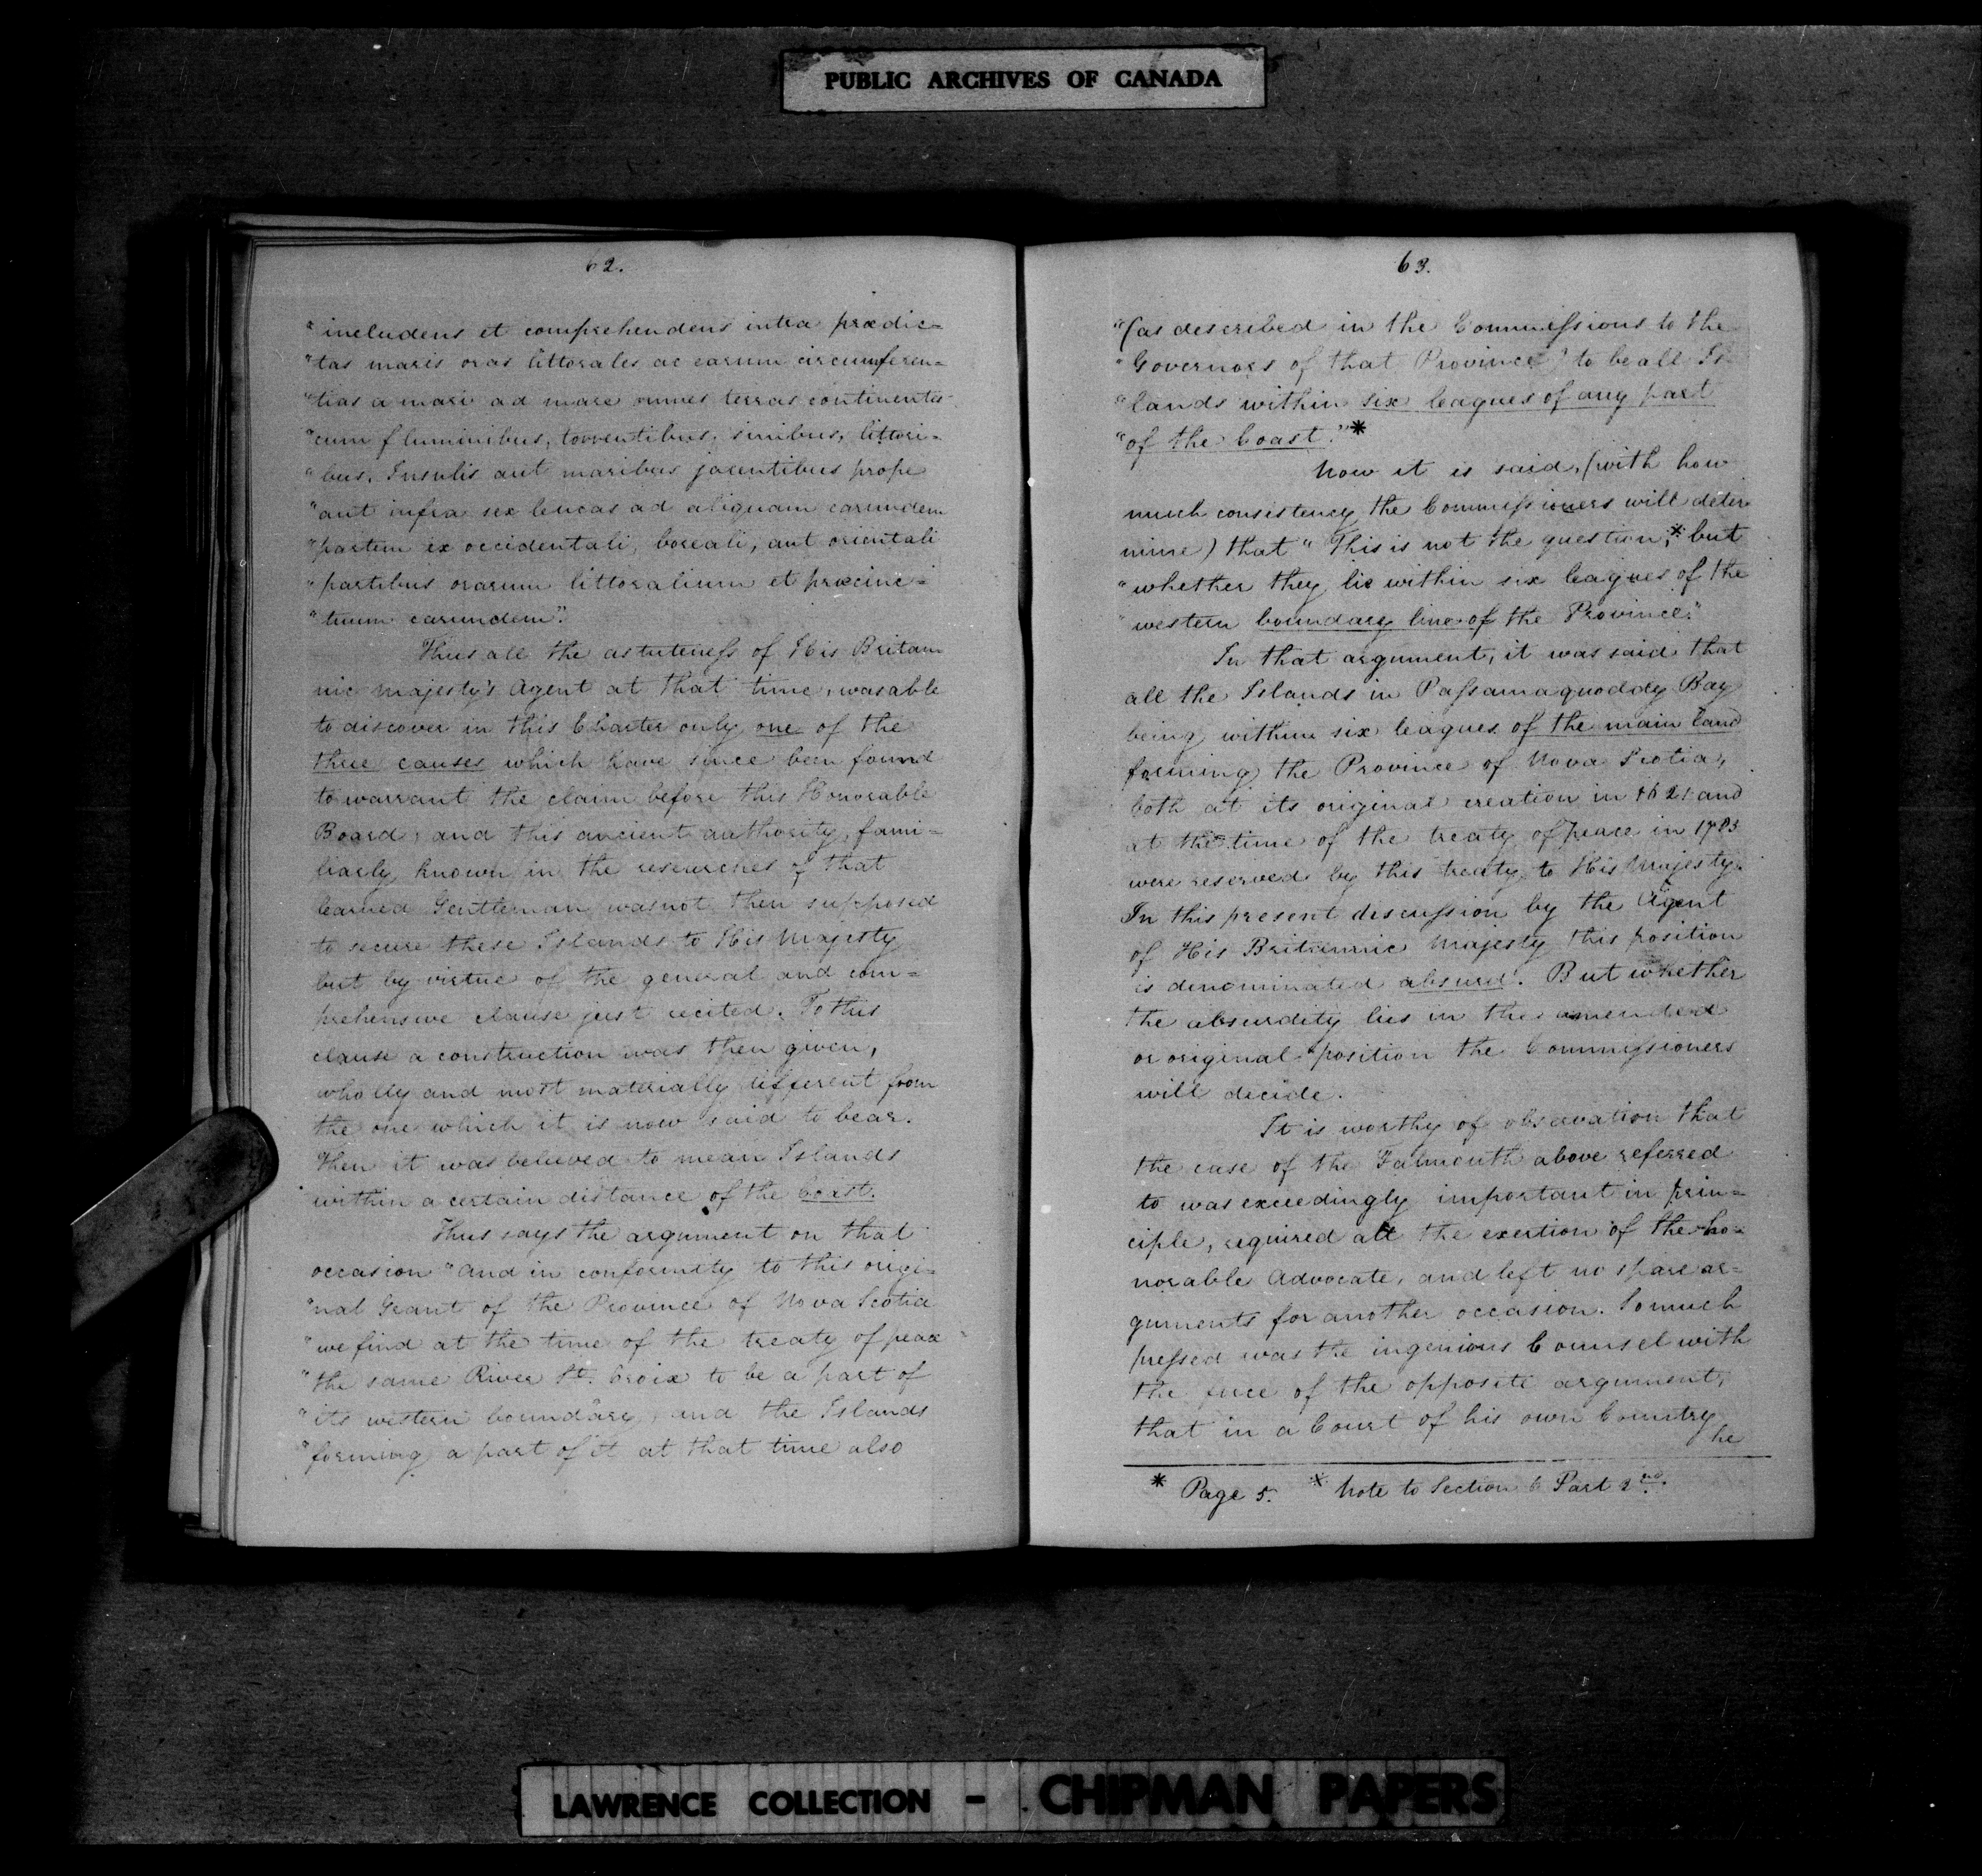 PUBLIC ARCHIVES OF CANADA
62.
"includens et comprehendens intra prædic=
"tas maris oras littorales ac earum circumferen=
"tias a mari ad mare omnes terras continentes
"cum fluminibus, torrentibus, sinibus, littori=
"bus, Insulis aut maribus jacentibus prope
"aut infra sex leucas ad aliquam earundem
"partem ex occidentali, boreali, aut orientali
"partibus orarum littoralium et præcinc=
"tuum earundem."
Thus all the astuteness of His Britan
nic Majesty's Agent at that time, was able
to discover in this Charter only one of the
three causes which have since been found
to warrant the claim before this Honorable
Board; and this ancient authority, fami=
liarly known in the researches of that
learned Gentleman was not then supposed
to secure these Islands to His Majesty
but by virtue of the general and com=
prehensive clause just recited. To this
clause a construction was then given,
wholly and most materially different from
the one which it is now said to bear.
Then it was believed to mean Islands
within a certain distance of the Coast.
Thus says the argument on that
occasion "and in conformity to this origi=
"nal Grant of the Province of Nova Scotia
"we find at the time of the treaty of peace
"the same River St. Croix to be a part of
"its western boundary, and the Islands
"forming a part of it at that time also
63.
"(as described in the Commissions to the
"Governors of that Province) to be all Is
"lands within six leagues of any part
"of the Coast."*
Now it is said, (with how
much consistency the Commissioners will deter
mine) that "This is not the question,* but
"whether they lie within six leagues of the
"western boundary line of the Province."
In that argument, it was said that
all the Islands in Passamaquoddy Bay
being within six leagues of the main land
forming the Province of Nova Scotia,
both at its original creation in 1621 and
at the time of the treaty of peace in 1783
were reserved by this treaty to His Majesty.
In this present discussion by the Agent
of His Britannic Majesty this position
is denominated absurd. But whether
the absurdity lies in the amended
or original position the Commissioners
will decide.
It is worthy of observation that
the case of the Falmouth above referred
to was exceedingly important in prin=
ciple, required all the exertion of the ho=
norable Advocate, and left no spare ar=
guments for another occasion. So much
pressed was the ingenious Counsel with
the force of the opposite argument,
that in a Court of his own Country
he
* Page 5. * Note to Section 6 Part 2nd.
LAWRENCE COLLECTION - CHIPMAN PAPERS